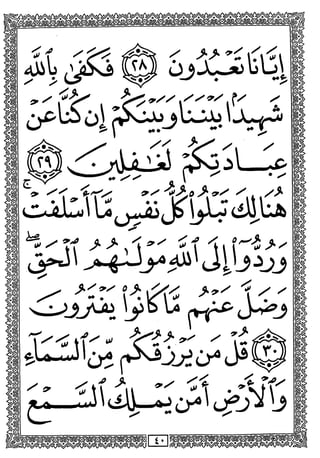 إِيَّانَا تَعْبُدُونَ ٢٨ فَكَفَىٰ بِٱللَّهِ
شَهِيدًۢا بَيْنَنَا وَبَيْنَكُمْ إِن كُنَّا عَنْ
عِبَادَتِكُمْ لَغَٰفِلِينَ ٢٩
هُنَالِكَ تَبْلُوا۟ كُلُّ نَفْسٍ مَّآ أَسْلَفَتْ ۚ
وَرُدُّوٓا۟ إِلَى ٱللَّهِ مَوْلَىٰهُمُ ٱلْحَقِّ ۖ
وَضَلَّ عَنْهُم مَّا كَانُوا۟ يَفْتَرُونَ
٣٠ قُلْ مَن يَرْزُقُكُم مِّنَ ٱلسَّمَآءِ
وَٱلْأَرْضِ أَمَّن يَمْلِكُ ٱلسَّمْعَ
٤٠